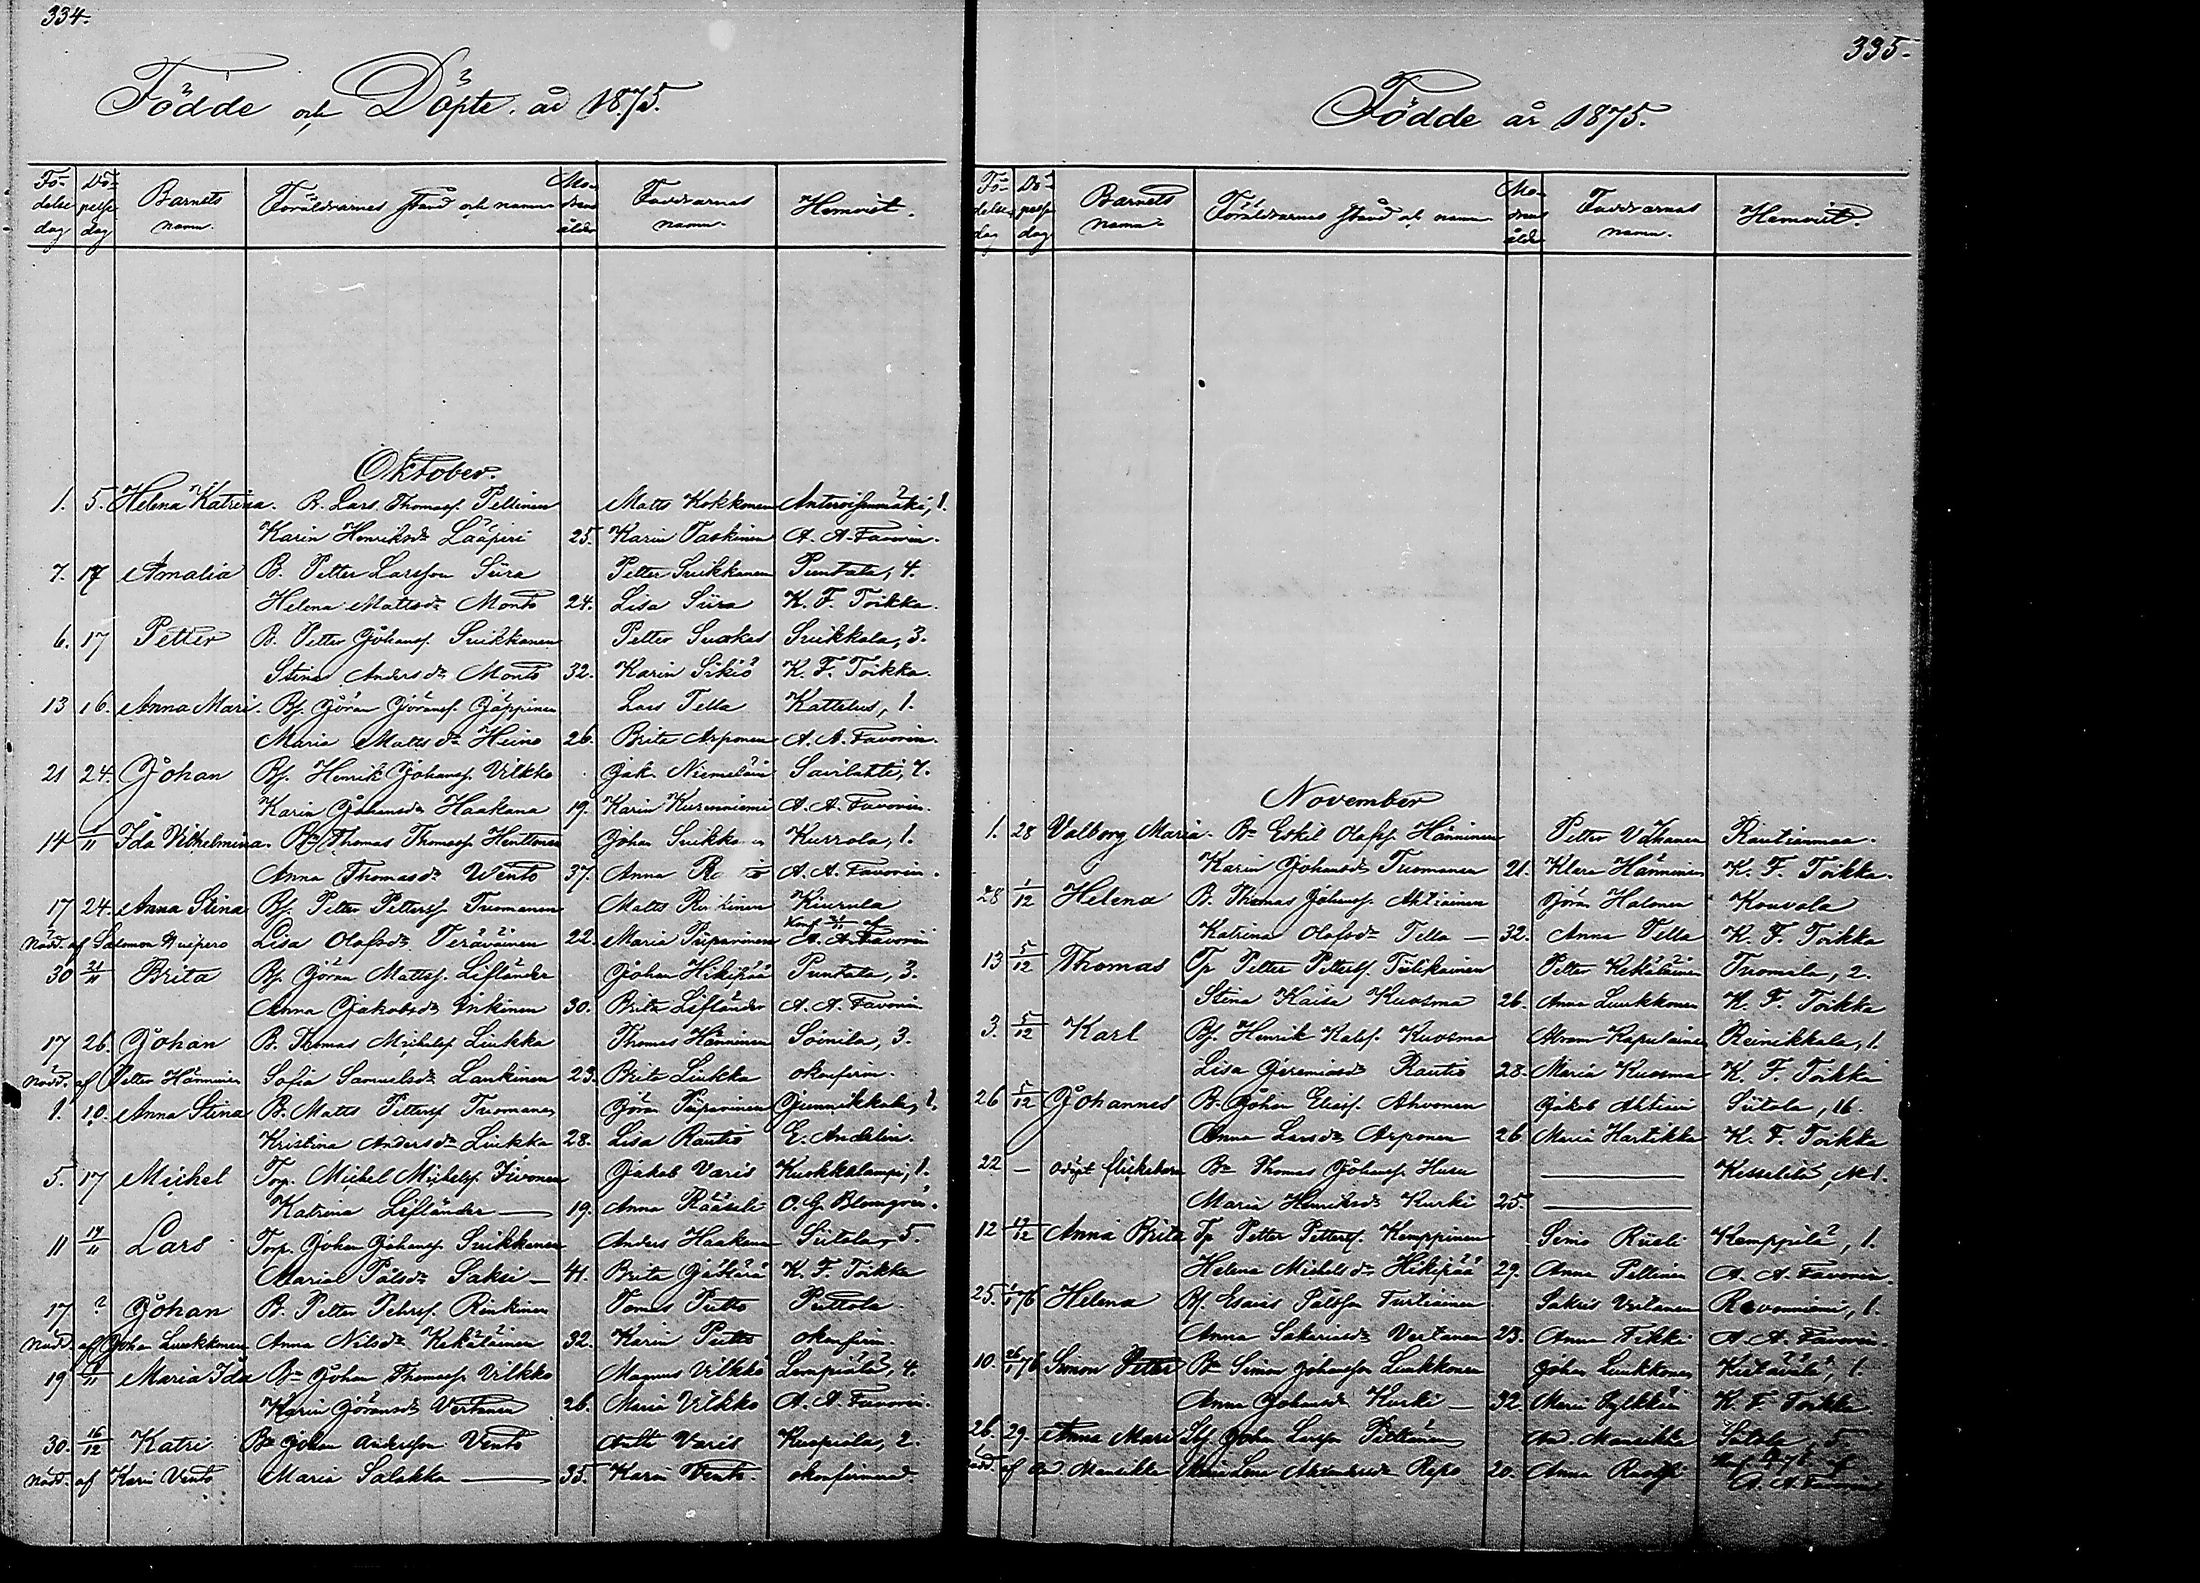 334.
Födde och Döpte år 1875.
Födelse dag | Döpelse dag | Barnets namn. | Föräldrarnes stånd och namn | Modrens ålder | Faddrarnas namn. | Hemvist.
Oktober.
1. 5. Helena Katrina. B. Lars Thomass. Pellinen Matts Kokkonen 1.
Karin Henriksdr Lääperi 25. Karin Taskinen A. A. Favorin.
7. 17 Amalia B. Petter Larsson Siira Petter Suikkanen Puntala, 4.
Helena Mattsdr Monto 24. Lisa Siira K. F. Toikka.
6. 17 Petter B. Petter Johanss. Suikkanen Petter Suikkala, 3.
Stina Andersdr Monto 32. Karin Sikiö K. F. Toikka.
13 16. Anna Mari. Bs. Göran Göranss. Jäppinen Lars Tella Kattelus, 1.
Maria Mattsdr Heino 26. Brita Arponen A. A. Favorin.
21 24. Johan Bs. Henrik Johanss. Vilkko Jak. Niemeläin Savilahti, 7.
Karin Johansdr Haakana 19. Karin Kurenniemi A. A. Favorin.
14 Ida Vilhelmina. Thomas Thomass. Henttonen Johan Kurrola, 1.
Anna Thomasdr Vento 37. Anna A. A. Favorin.
17 24. Anna Stina Bs. Petter Petterss. Tuomanen Matts Kiurula
Nödd. af Salomon Kuipero Lisa Olofsdr Teräväinen 22. Maria Piiparinen A. A. Favorin
30 21/11 Brita Bs. Göran Mattss. Lifländer Johan Hikipää Puntala, 3.
Anna Jakobsdr Inkinen 30. Brita Lifländer A. A. Favorin
17 26. Johan B. Thomas Michelss. Liukka Thomas Hänninen Soinila, 3.
Nödd. af Petter Hänninen Sofia Samuelsdr Lankinen 23. Brita Liukka okonfirm.
1. 10. Anna Stina B. Matts Petterss. Tuomanen Göran Piiparinen Junnikkala, 1.
Kristina Andersdr Liukka 28. Lisa Rautio E. Andelin.
5. 17 Michel Torp. Michel Michelss. Iivonen Jakob Varis Kuokkalampi, 1.
Katrina Lifländer — 19. Anna Rääseli O. G. Blomgren.
11 14/11 Lars Torp. Johan Johanss. Suikkanen Anders Haakana Siitola, 5.
Maria Pålsdr Saksi — 41. Brita Jääkärä K. F. Toikka
17 ? Johan B. Petter Peterss. Rinkinen Tomas Putto Puttola.
Nödd. af Johan Luukkonen Anna Nilsdr Kekäläinen 32. Karin Putto okonfirm.
19 Maria Ida Bn Johan Thomass. Vilkko Magnus Vilkko Lampiälä, 4.
Karin Göransdr Vertanen 26. Maria Vilkko A. A. Favorin.
30. 16/12 Katri Bn Johan Andersson Vento Antti Varis Kuopiala, 2.
Nödd. af Karin Vento Maria Salakka — 35. Karin Vento. okonfirmerad.
335.
Födde år 1875.
Födelse dag | Döpelse dag | Barnets namn | Föräldrarnes stånd och namn | Modrens ålder | Faddrarnas namn. | Hemvist.
November
1. 28 Valborg Maria. Bn Eskil Olofss. Hänninen Petter Rautianmaa.
Karin Johansdr Tuomanen 21. Klara Hänninen K. F. Toikka.
28 1/12 Helena B. Thomas Johanss. Ahtiainen Göran Halonen Kouvola
Katrina Olofsdr Tella — 32. Anna Tella K. F. Toikka
13 5/12 Thomas Tp Petter Petterss. Tiilikainen Petter Kekäläinen Tuomala, 2.
Stina Kaisa Kuosma 26. Anna Luukkonen K. F. Toikka
3. 5/12 Karl Bs. Henrik Kuosma Abram Kapulainen Reinikkala, 1.
Lisa Jeremiasdr Rautio 28. Maria Kuosma K. F. Toikka
26 5/12 Johannes B. Johan Eliass. Ahvonen Jakob Ahtiain Siitola, 16.
Anna Larsdr Arponen 26 Maria Hartikka K. F. Toikka
22 — odöpt flickebarn Bn Thomas Johanss. Husu ——— Kesselilä, M 1.
Maria Henriksdr Kurki 25. ———
12 Anna Brita Tp Petter Petterss. Kemppinen Simo Rusti Kemppilä, 1.
Helena Michelsdr Hikipää 29. Anna Pellinen A. A. Favorin.
25. 76 Helena Bs. Esaias Pålsson Turtiainen Sakris Vertanen Ravonniemi, 1.
Anna Sakariasdr Vertanen 23. Anna Fikki A. A. Favorin.
10. 26/1 76 Simon Petter Bn Simon Johansson Luukkonen Johan Luukkonen 1.
Anna Johansdr Kurki — 32 Maria K. F. Toikka
26. 29. Anna Mari Johan Larsson Ad. Mansikka Siitola, 5.
Nödd. af Ad. Mansikka Maria Lena Repo 20. Anna
A. A. Favorin